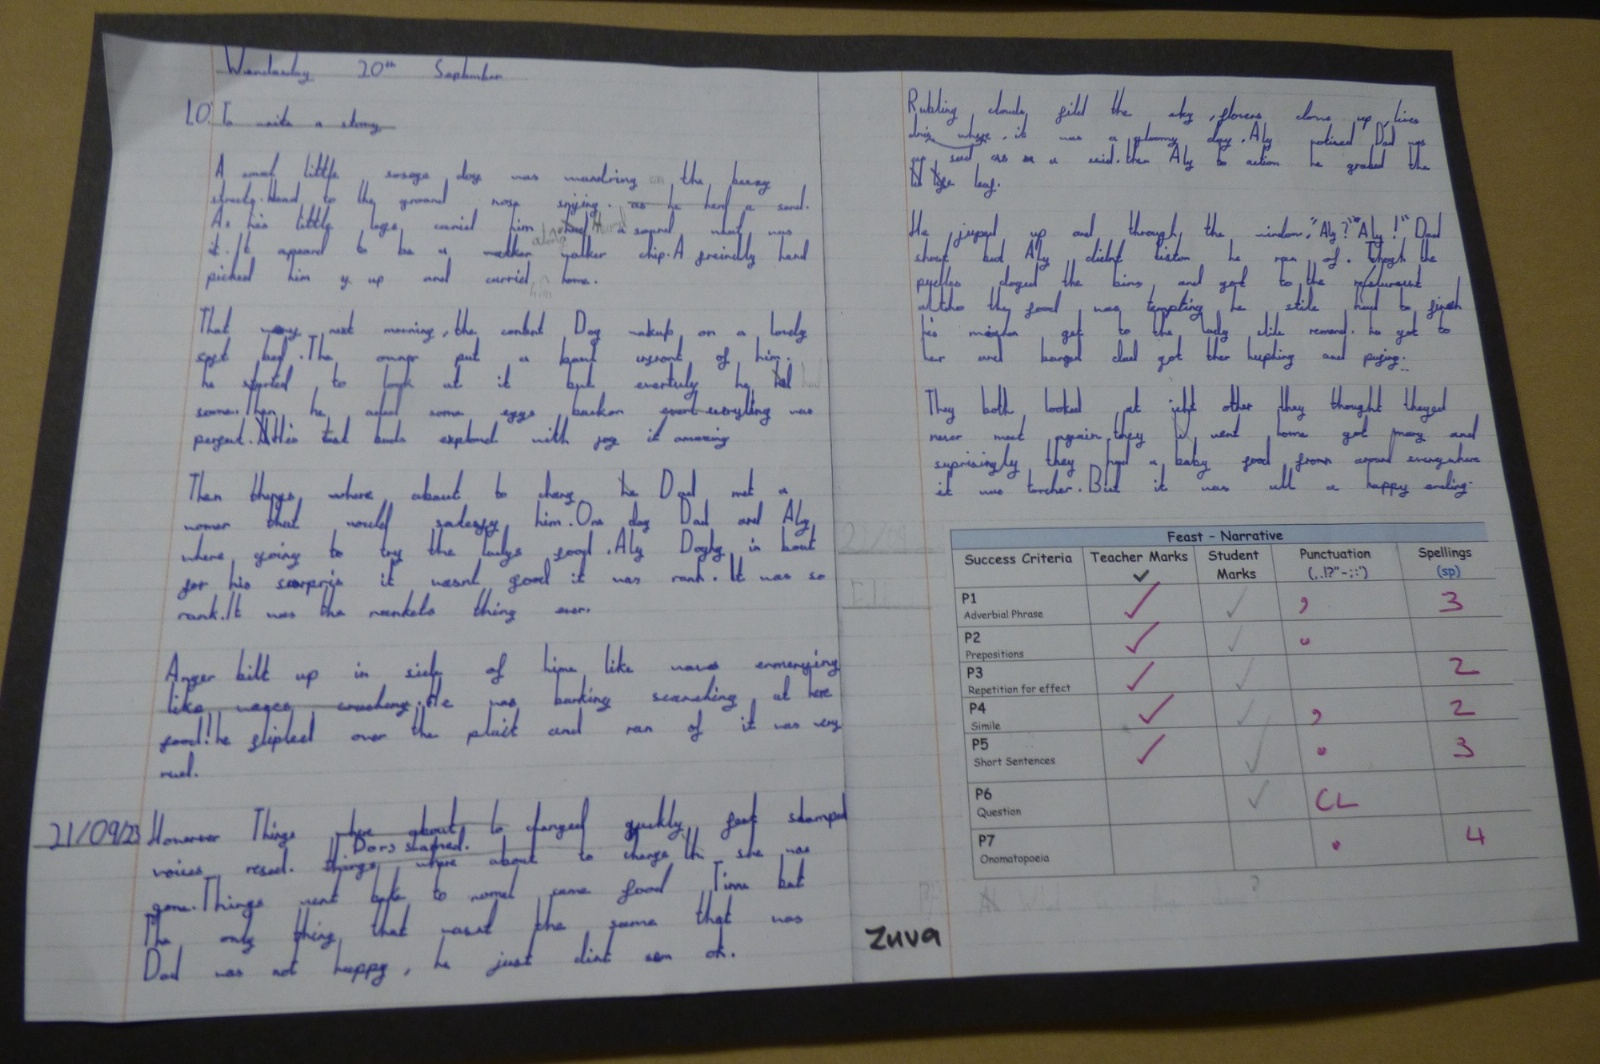 Wendesday 20th September
LO: To write a story
A small little sosage dog was wandring on the beezy
streets. Head to the ground nose snying. as he herd a sond.
As his little legs carried him along a sound what was
it. It apeard to be a walker chip. A freindly hand
picked him up and carried him home.
That very next morning, the content Dog wakup on a lovely
soft bed. The owner put a bowl infront of him.
he started to look at it but eventuly he had
some. Then he some eggs backon everything was
perfect. His tast buds explored with joy it amazing
Then things where about to chang. the Dad met a
women that would him. One day Dad and Aly
where going to try the ladys food. Aly Dogly in bowl
for his it wasnt good it was rank. It was so
rank. It was the thing ever.
Anger bilt up in side of hime like waves
like waves crashing. He was barking at here
food! he flipled over the plait and ran of it was very
rued.
21/09/23 However Things where about to changed quickly, feet stamped
Dors slamed.
voices resed. things where about to change she was
gone. Things went bake to same food Time but
The only thing that wasnt the same that was
Dad was not happy, he just dint oh.
clouds fild the sky, flowers clows up, lives
it was a gloomy day. Aly noticed Dad was
sad as a then Aly to action he grabed the
leaf.
He juped up and through the window, "Aly?" "Aly!" Dad
but Aly didnt listen he ran of. Thogh the
the bins and got to the
altho the food was tempting he stile had to finsh
his mission get to the lady he got to
her and barged dad got ther and
They both looked at other they thought theyed
never meet again they went home got and
suprisingly they had a baby food from around everywhere
it was torcher. But it was all a happy ending.
Feast - Narrative
Success Criteria Teacher Marks ✓ Student Marks Punctuation (,.!?"-;:') Spellings (sp)
P1 Adverbial Phrase ✓ ✓ , 3
P2 Prepositions ✓ ✓ .
P3 Repetition for effect ✓ ✓ 2
P4 Simile ✓ ✓ , 2
P5 Short Sentences ✓ ✓ . 3
P6 Question ✓ CL
P7 Onomatopoeia . 4
Zuva